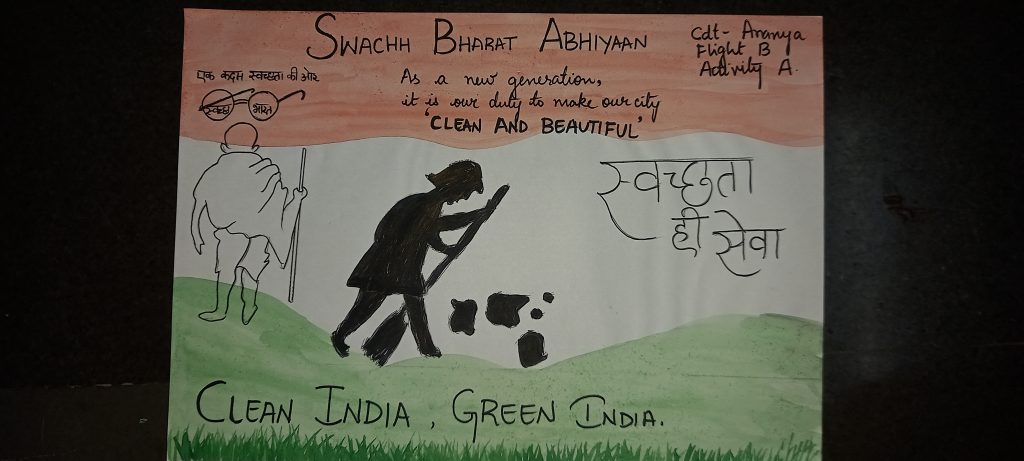 SWACHH BHARAT ABHIYAAN
Cdt- Ananya
Flight B
Activity A
एक कदम स्वच्छता की ओर
स्वच्छ भारत
As a new generation,
it is our duty to make our city
'CLEAN AND BEAUTIFUL'
स्वच्छता
ही सेवा
CLEAN INDIA, GREEN INDIA.